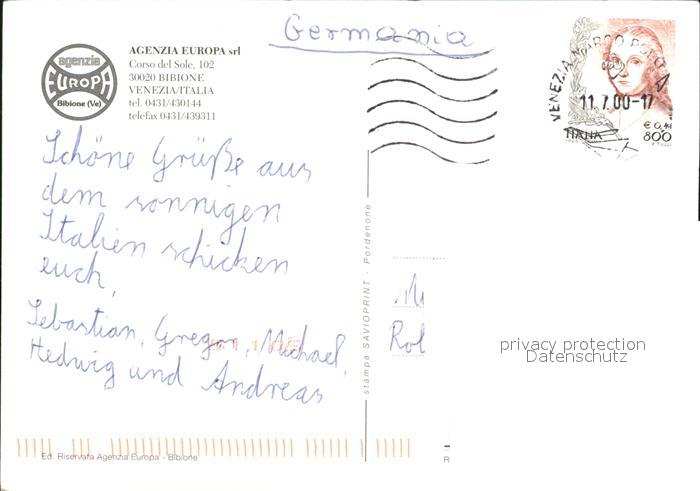 Germania
agenzia
EUROPA
Bibione (Ve)
AGENZIA EUROPA srl
Corso del Sole, 102
30020 BIBIONE
VENEZIA/ITALIA
tel. 0431/430144
telefax 0431/439311
VENEZIA MARCO POLO
11.7.00-17
€ 0,41
800
Schöne Grüße aus
dem sonnigen
Italien schicken
euch,
Sebastian, Gregor, Michael,
Hedwig und Andreas
stampa SAVIOPRINT - Pordenone
Rol
privacy protection
Datenschutz
Ed. Riservata Agenzia Europa - Bibione
R